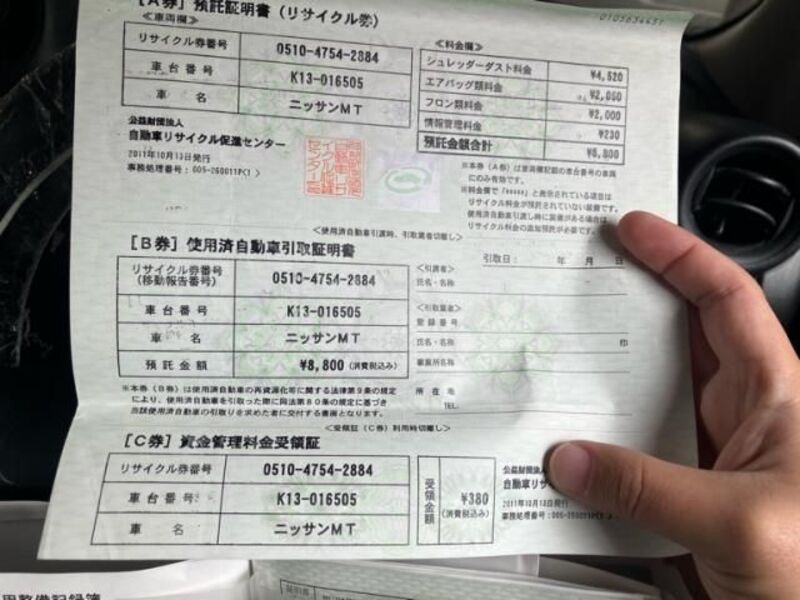 [A券] 預託証明書 (リサイクル券)
0105634637
≪車両欄≫
リサイクル券番号 0510-4754-2884
車台番号 K13-016505
車名 ニッサンMT
≪料金欄≫
シュレッダーダスト料金 ¥4,520
エアバッグ類料金 ¥2,050
フロン類料金 ¥2,000
情報管理料金 ¥230
預託金額合計 ¥8,800
公益財団法人
自動車リサイクル促進センター
2011年10月13日発行
※本券(A券)は車両欄記載の車台番号の車両
にのみ有効です。
リサイクル料金が預託されていない装備です。
リサイクル料金の追加預託が必要です。
<使用済自動車引渡時、引取業者切離し>
[B券] 使用済自動車引取証明書
引取日: 年 月 日
リサイクル券番号
(移動報告番号) 0510-4754-2884
車台番号 K13-016505
車名 ニッサンMT
預託金額 ¥8,800 (消費税込み)
氏名・名称
<引取業者>
登録番号
氏名・名称 印
事業所名称
所在地
TEL.
※本券(B券)は使用済自動車の再資源化等に関する法律第9条の規定
により、使用済自動車を引取った際に同法第80条の規定に基づき
当該使用済自動車の引取りを求めた者に交付する書面となります。
<受領証(C券)利用時切離し>
[C券] 資金管理料金受領証
リサイクル券番号 0510-4754-2884
車台番号 K13-016505
車名 ニッサンMT
受領金額 ¥380
(消費税込み)
公益財団法人
自動車リサ
2011年10月13日発行